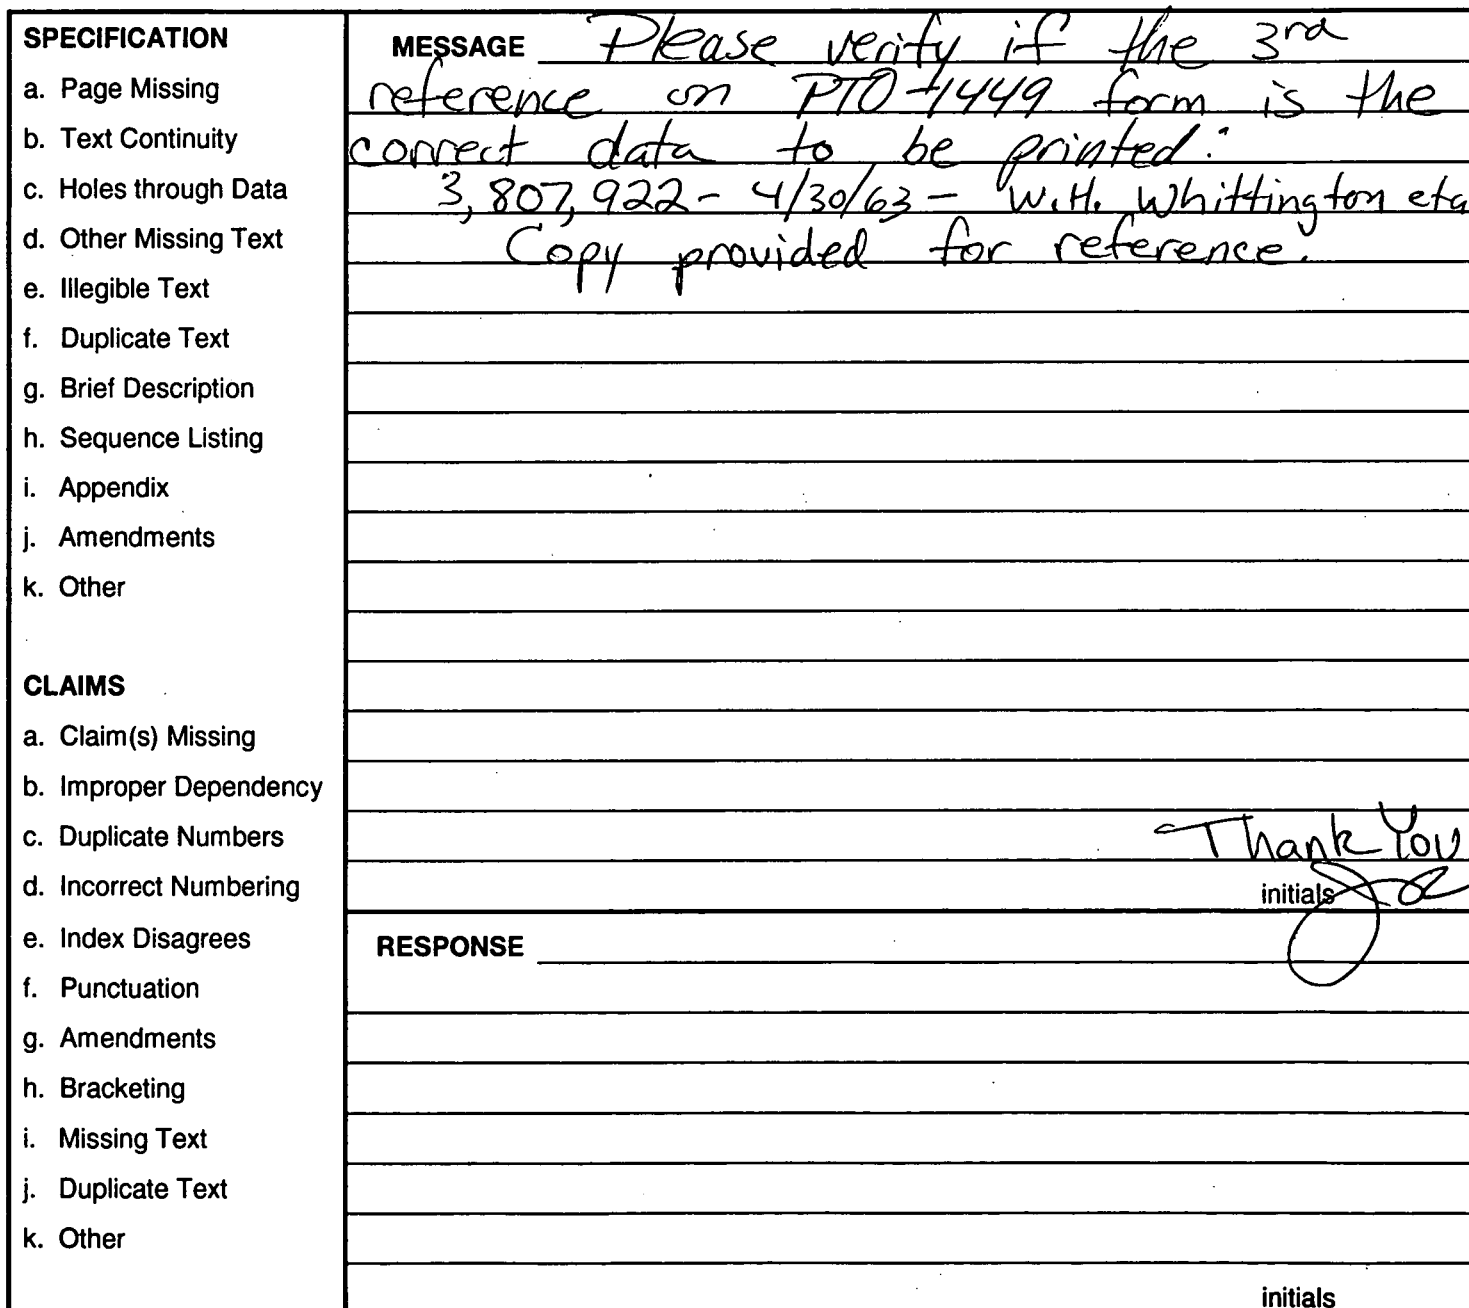 SPECIFICATION
a. Page Missing
b. Text Continuity
c. Holes through Data
d. Other Missing Text
e. Illegible Text
f. Duplicate Text
g. Brief Description
h. Sequence Listing
i. Appendix
j. Amendments
k. Other
CLAIMS
a. Claim(s) Missing
b. Improper Dependency
c. Duplicate Numbers
d. Incorrect Numbering
e. Index Disagrees
f. Punctuation
g. Amendments
h. Bracketing
i. Missing Text
j. Duplicate Text
k. Other
MESSAGE Please verify if the 3rd
reference on PTO-1449 form is the
correct data to be printed:
3,807,922- 4/30/63- W.H. Whittington eta
Copy provided for reference.
Thank You
initials
RESPONSE
initials